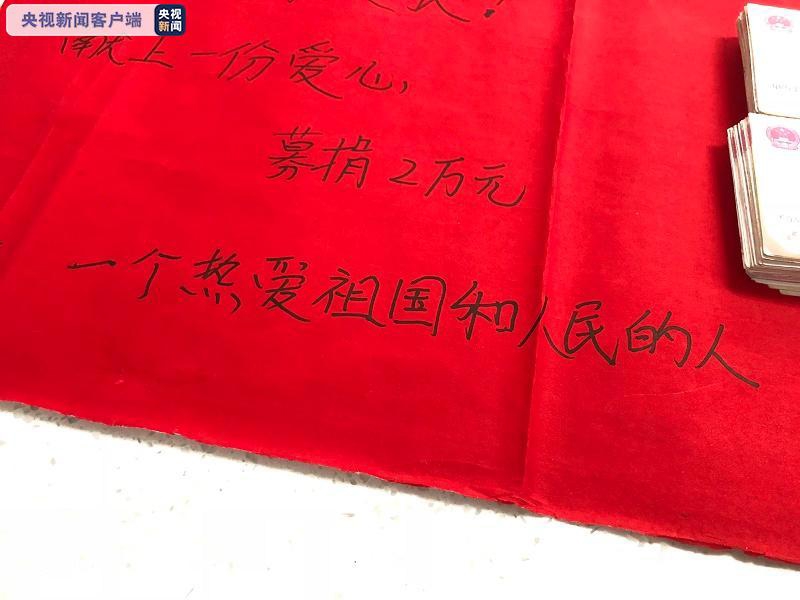 央视新闻客户端
央视
新闻
献上一份爱心,
募捐2万元
一个热爱祖国和人民的人